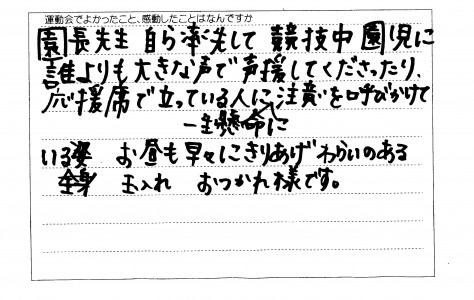 運動会でよかったこと、感動したことはなんですか
園長先生 自ら率先して 競技中 園児に
誰よりも大きな声で声援してくださったり、
応援席で立っている人に注意を呼びかけて
一生懸命に
いる姿 お昼も早々にきりあげ わらいのある
玉入れ おつかれ様です。